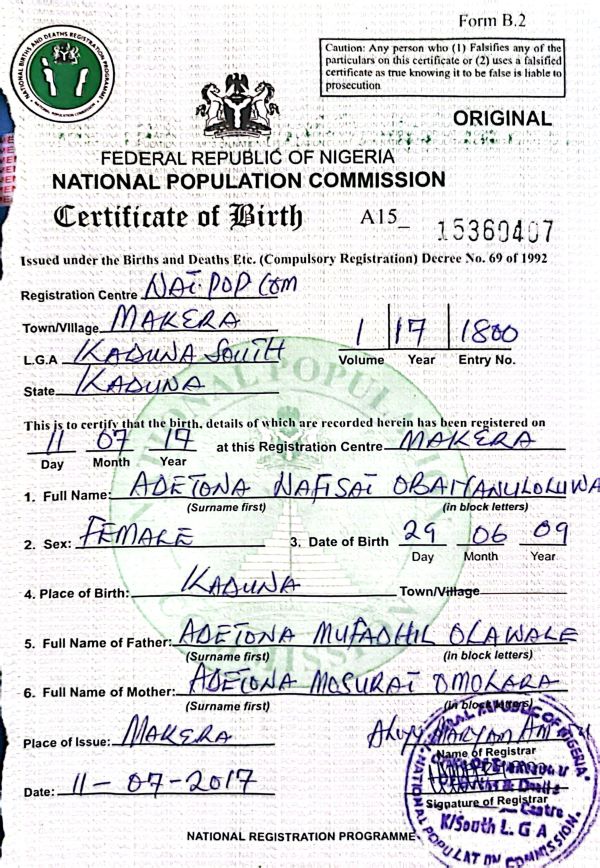 Form B.2
NATIONAL BIRTHS AND DEATHS REGISTRATION PROGRAMME
NATIONAL POPULATION COMMISSION
Caution: Any person who (1) Falsifies any of the
particulars on this certificate or (2) uses a falsified
certificate as true knowing it to be false is liable to
prosecution
ORIGINAL
FEDERAL REPUBLIC OF NIGERIA
NATIONAL POPULATION COMMISSION
Certificate of Birth A15_ 15360407
Issued under the Births and Deaths Etc. (Compulsory Registration) Decree No. 69 of 1992
Registration Centre NAT. POP COM
Town/Village MAKERA
L.G.A KADUNA SOUTH
1 17 1800
Volume Year Entry No.
State KADUNA
This is to certify that the birth, details of which are recorded herein has been registered on
11 07 17 at this Registration Centre MAKERA
Day Month Year
1. Full Name: ADETONA NAFISAT OBAIYANULOLUWA
(Surname first) (in block letters)
2. Sex: FEMALE 3. Date of Birth 29 06 09
Day Month Year
4. Place of Birth: KADUNA Town/Village
5. Full Name of Father: ADETONA MUFADHIL OLAWALE
(Surname first) (in block letters)
6. Full Name of Mother: ADETONA MOSURAT OMOLARA
(Surname first) (in block letters)
Place of Issue: MAKERA
Name of Registrar
Date: 11-07-2017
Signature of Registrar
Centre
K/South L.G.A
NATIONAL REGISTRATION PROGRAMME